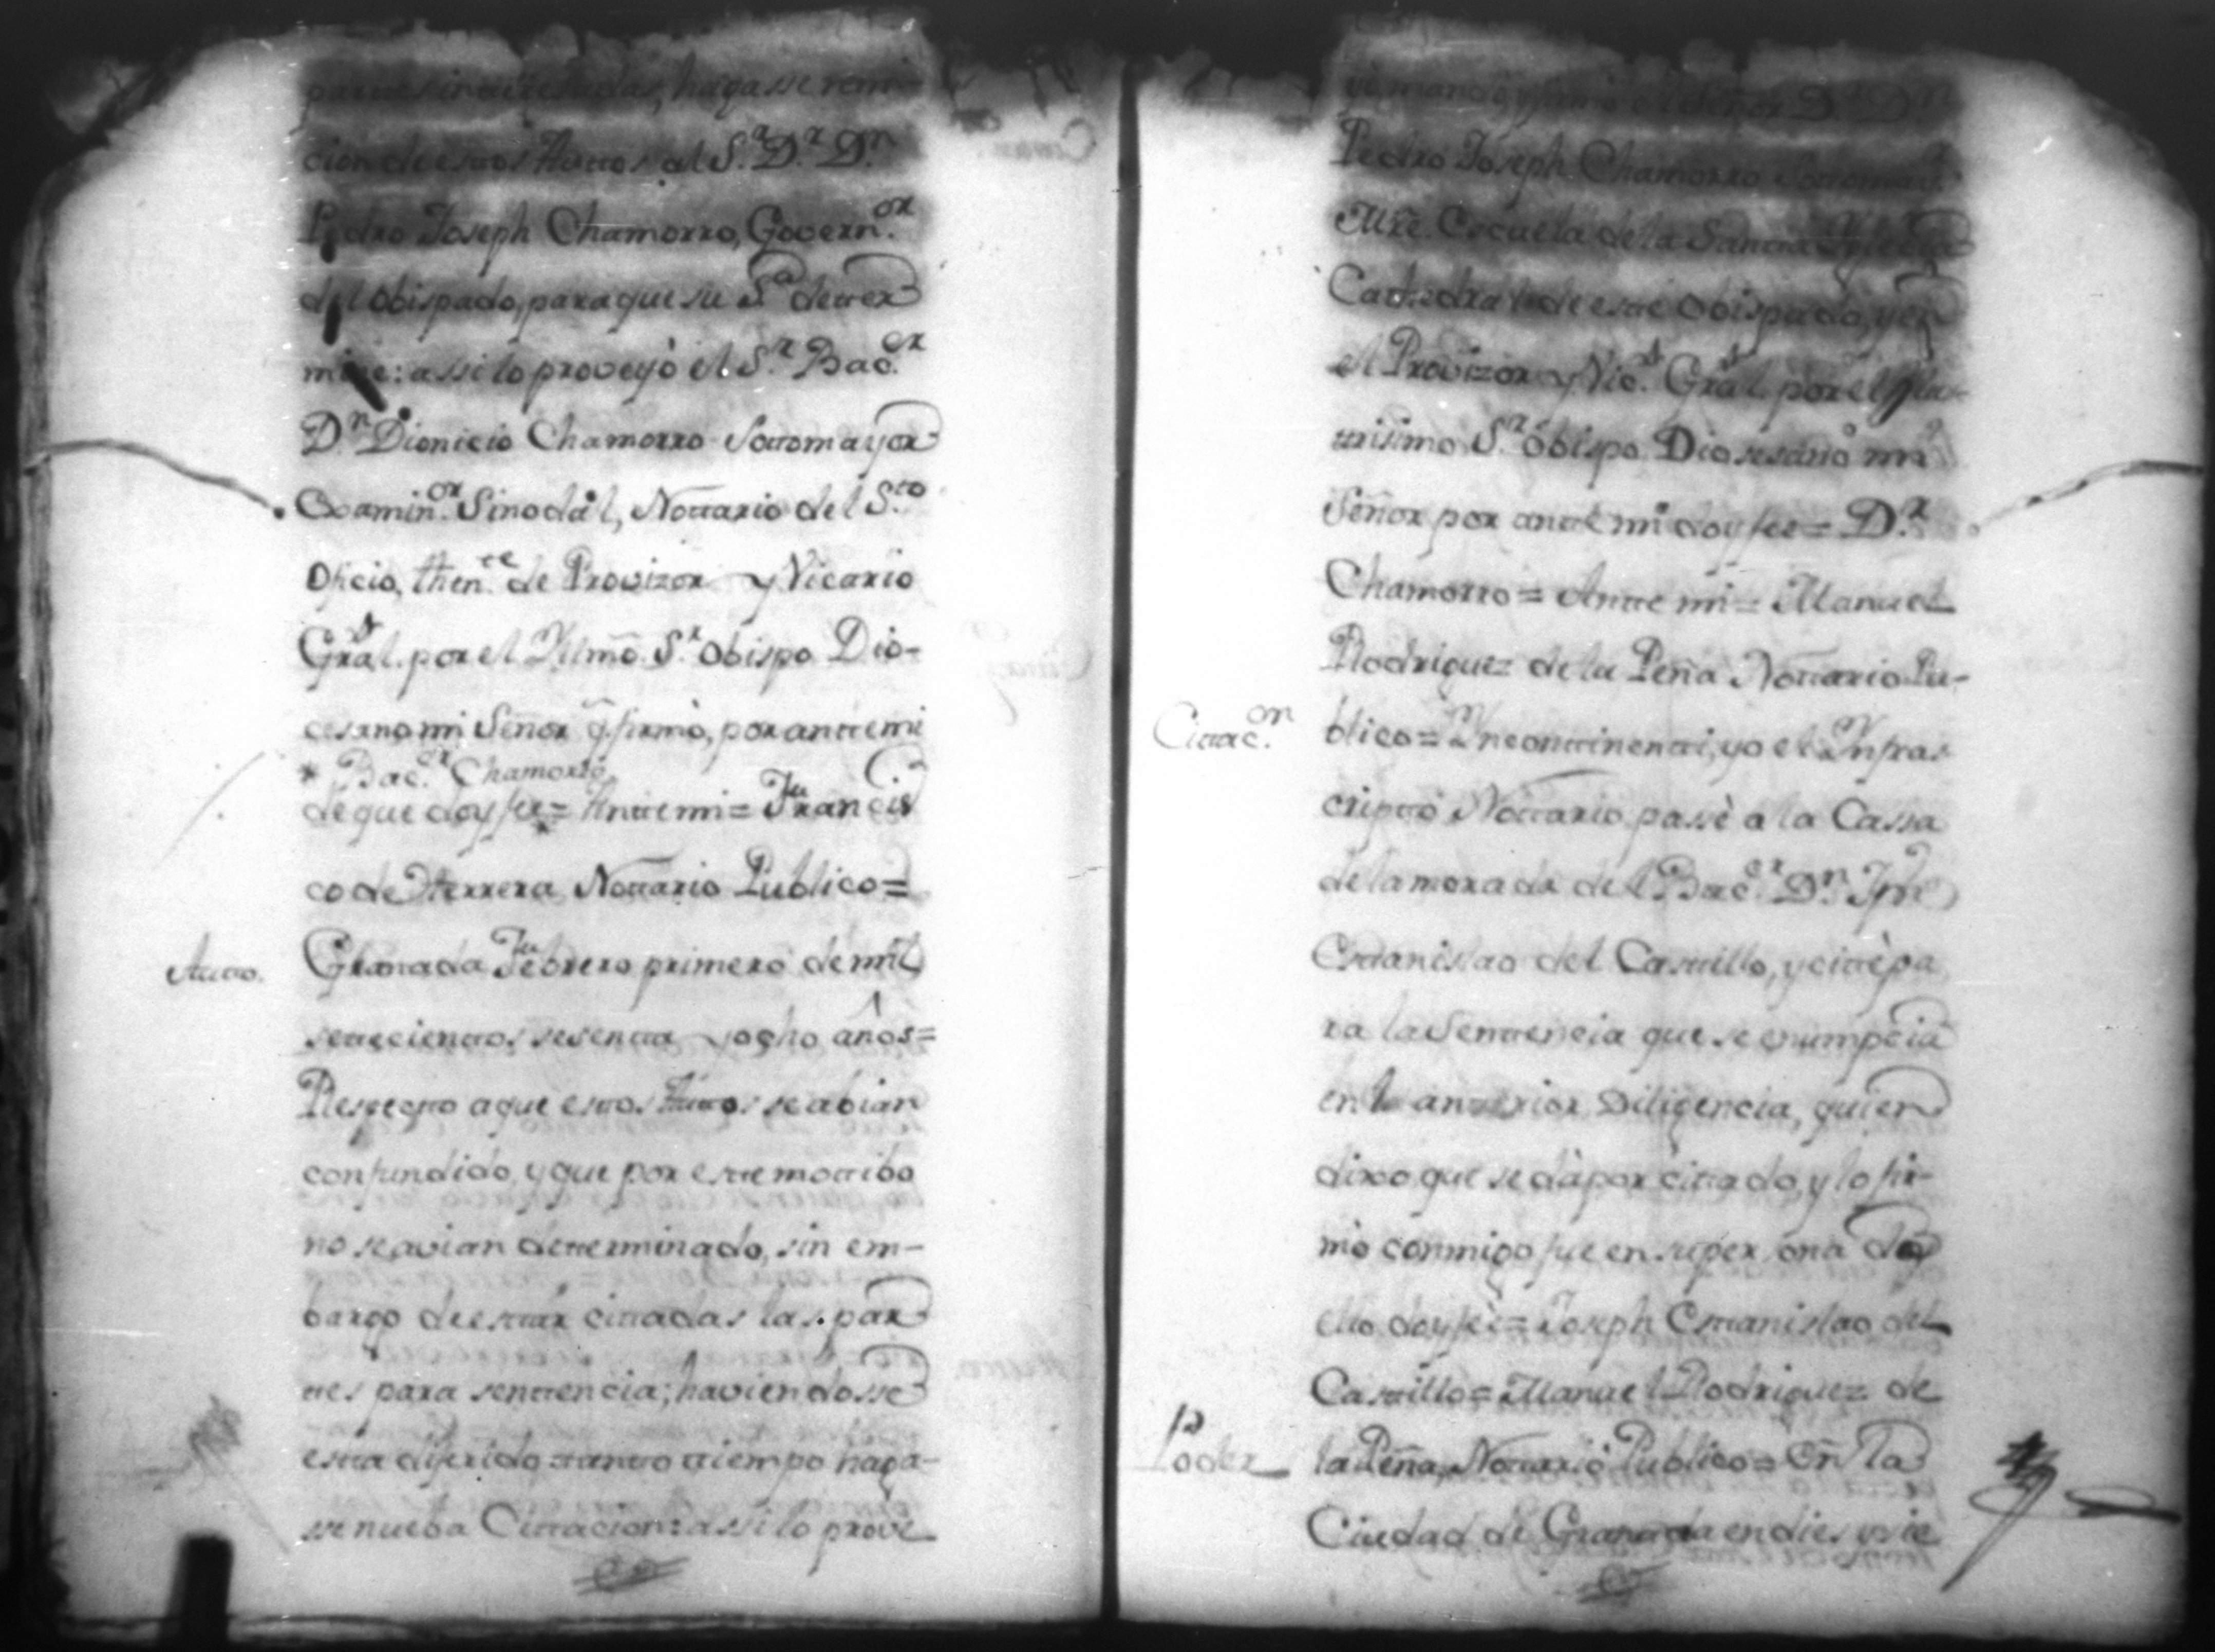 partes interezadas, hagasse remi-
cion de estos Auttos al S.r D.r D.n
Pedro Joseph Chamorro, Govern.or
del Obispado, para que su S.a detter
mine: assi lo proveyò el S.r Bac.er
D.n Dionicio Chamorro Sottomayor
Examin.or Sinodàl, Nottario del S.to
Oficio, then.te de Provizor y Vicario
Grãl. por el Yllmõ. S.r Obispo Dio-
cesano mi Señor q̃ firmò, por antte mi
* Bac.er Chamorro
de que doy fee = Antte mi = Francis
co de Herrera Nottario Publico =
Autto.
Granada Febrero primero de mil
settecienttos sesentta y ocho años =
Respecto a que estos Auttos se abian
confundido, y que por este mottibo
no se avian determinado, sin em-
bargo de esttár cittadas las par
tes para senttencia; haviendosse
esta diferido tantto tiempo haga-
se nueba Cittacion: assi lo prove
yó, mandó, y firmó el Señor D.r D.n
Pedro Joseph Chamorro Sottomay.r
Mrẽ. Escuela de la Santta Yglecia
Cathedral de este Obispado, y en
el Provizor y Vic.o Grãl. por el Yllus-
trisimo S.r Obispo Diosesano mi
Señor por antte mi doy fee = D.r
Chamorro = Antte mi = Manuel
Rodriguez de la Peña Nottario Pu-
Cittac.on
blico = Yncontinentti, yo el Ynfras
criptto Nottario, passè a la Cassa
de la morada del Bac.er D.n Jph̃
Estanislao del Castillo, y cittè pa
ra la Sentencia que se enumpcia
en la anterior Diligencia, quien
dixo que se dà por cittado, y lo fir-
mò conmigo fue en su persona de
ello doy feè = Joseph Estanislao del
Castillo = Manuel Rodriguez de
Poder
la Peña, Nottario Publico = En la
Ciudad de Granada en dies y sie